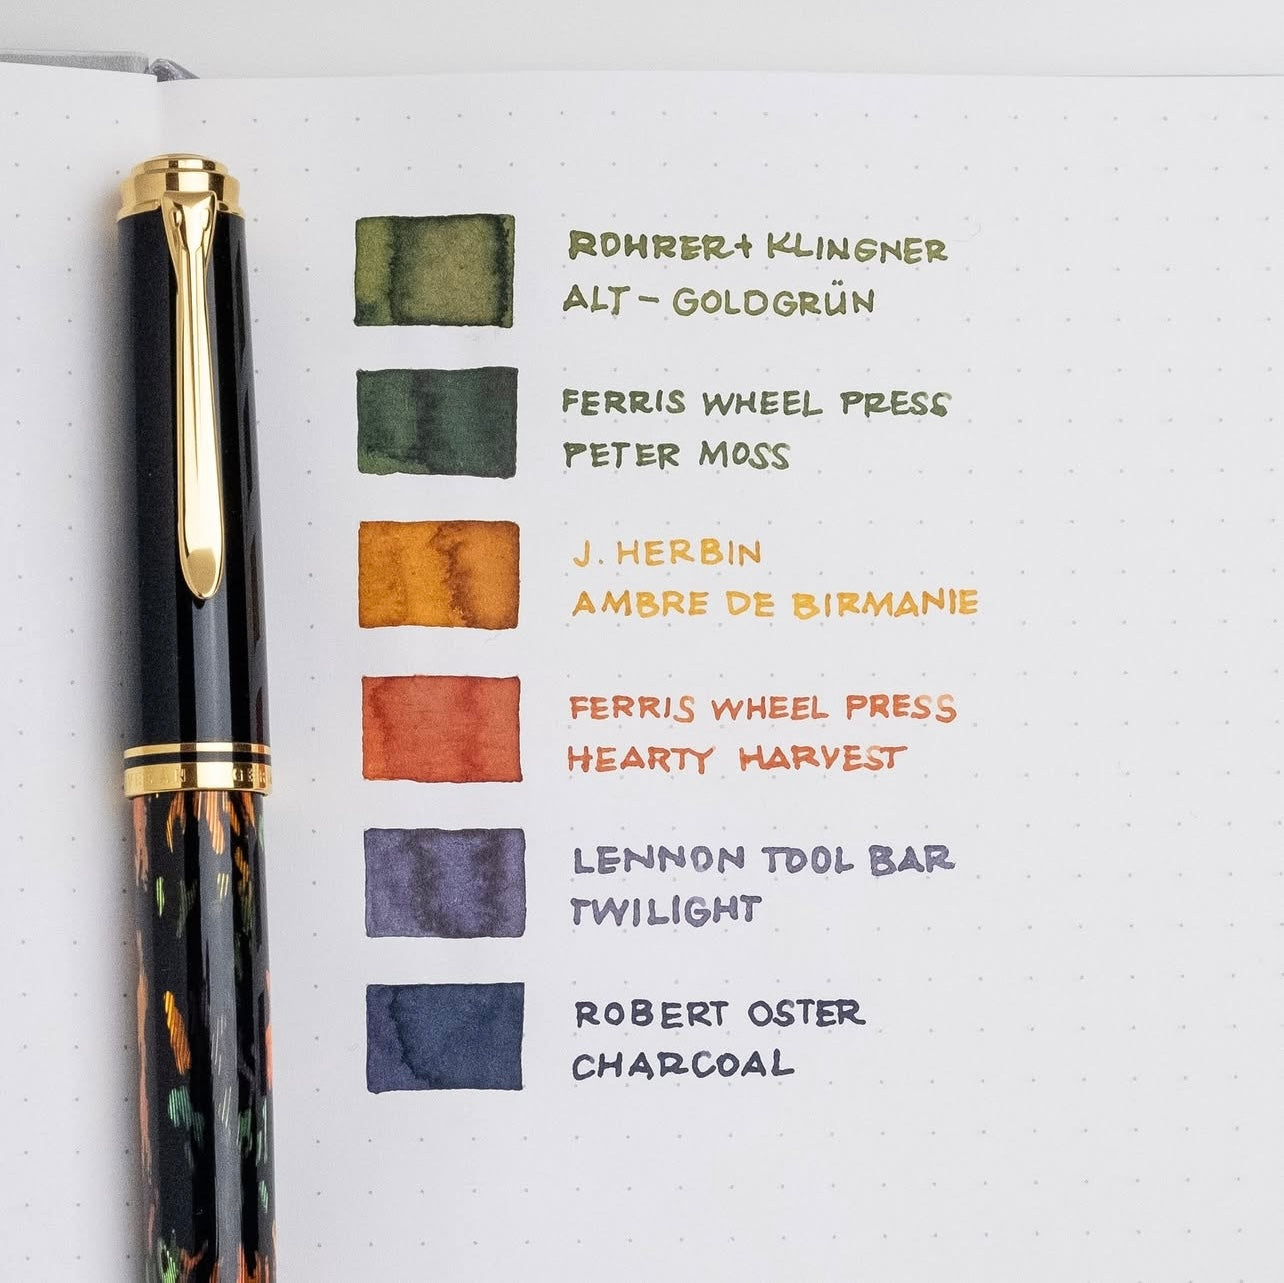 ROHRER + KLINGNER
ALT-GOLDGRÜN
FERRIS WHEEL PRESS
PETER MOSS
J. HERBIN
AMBRE DE BIRMANIE
FERRIS WHEEL PRESS
HEARTY HARVEST
LENNON TOOL BAR
TWILIGHT
ROBERT OSTER
CHARCOAL